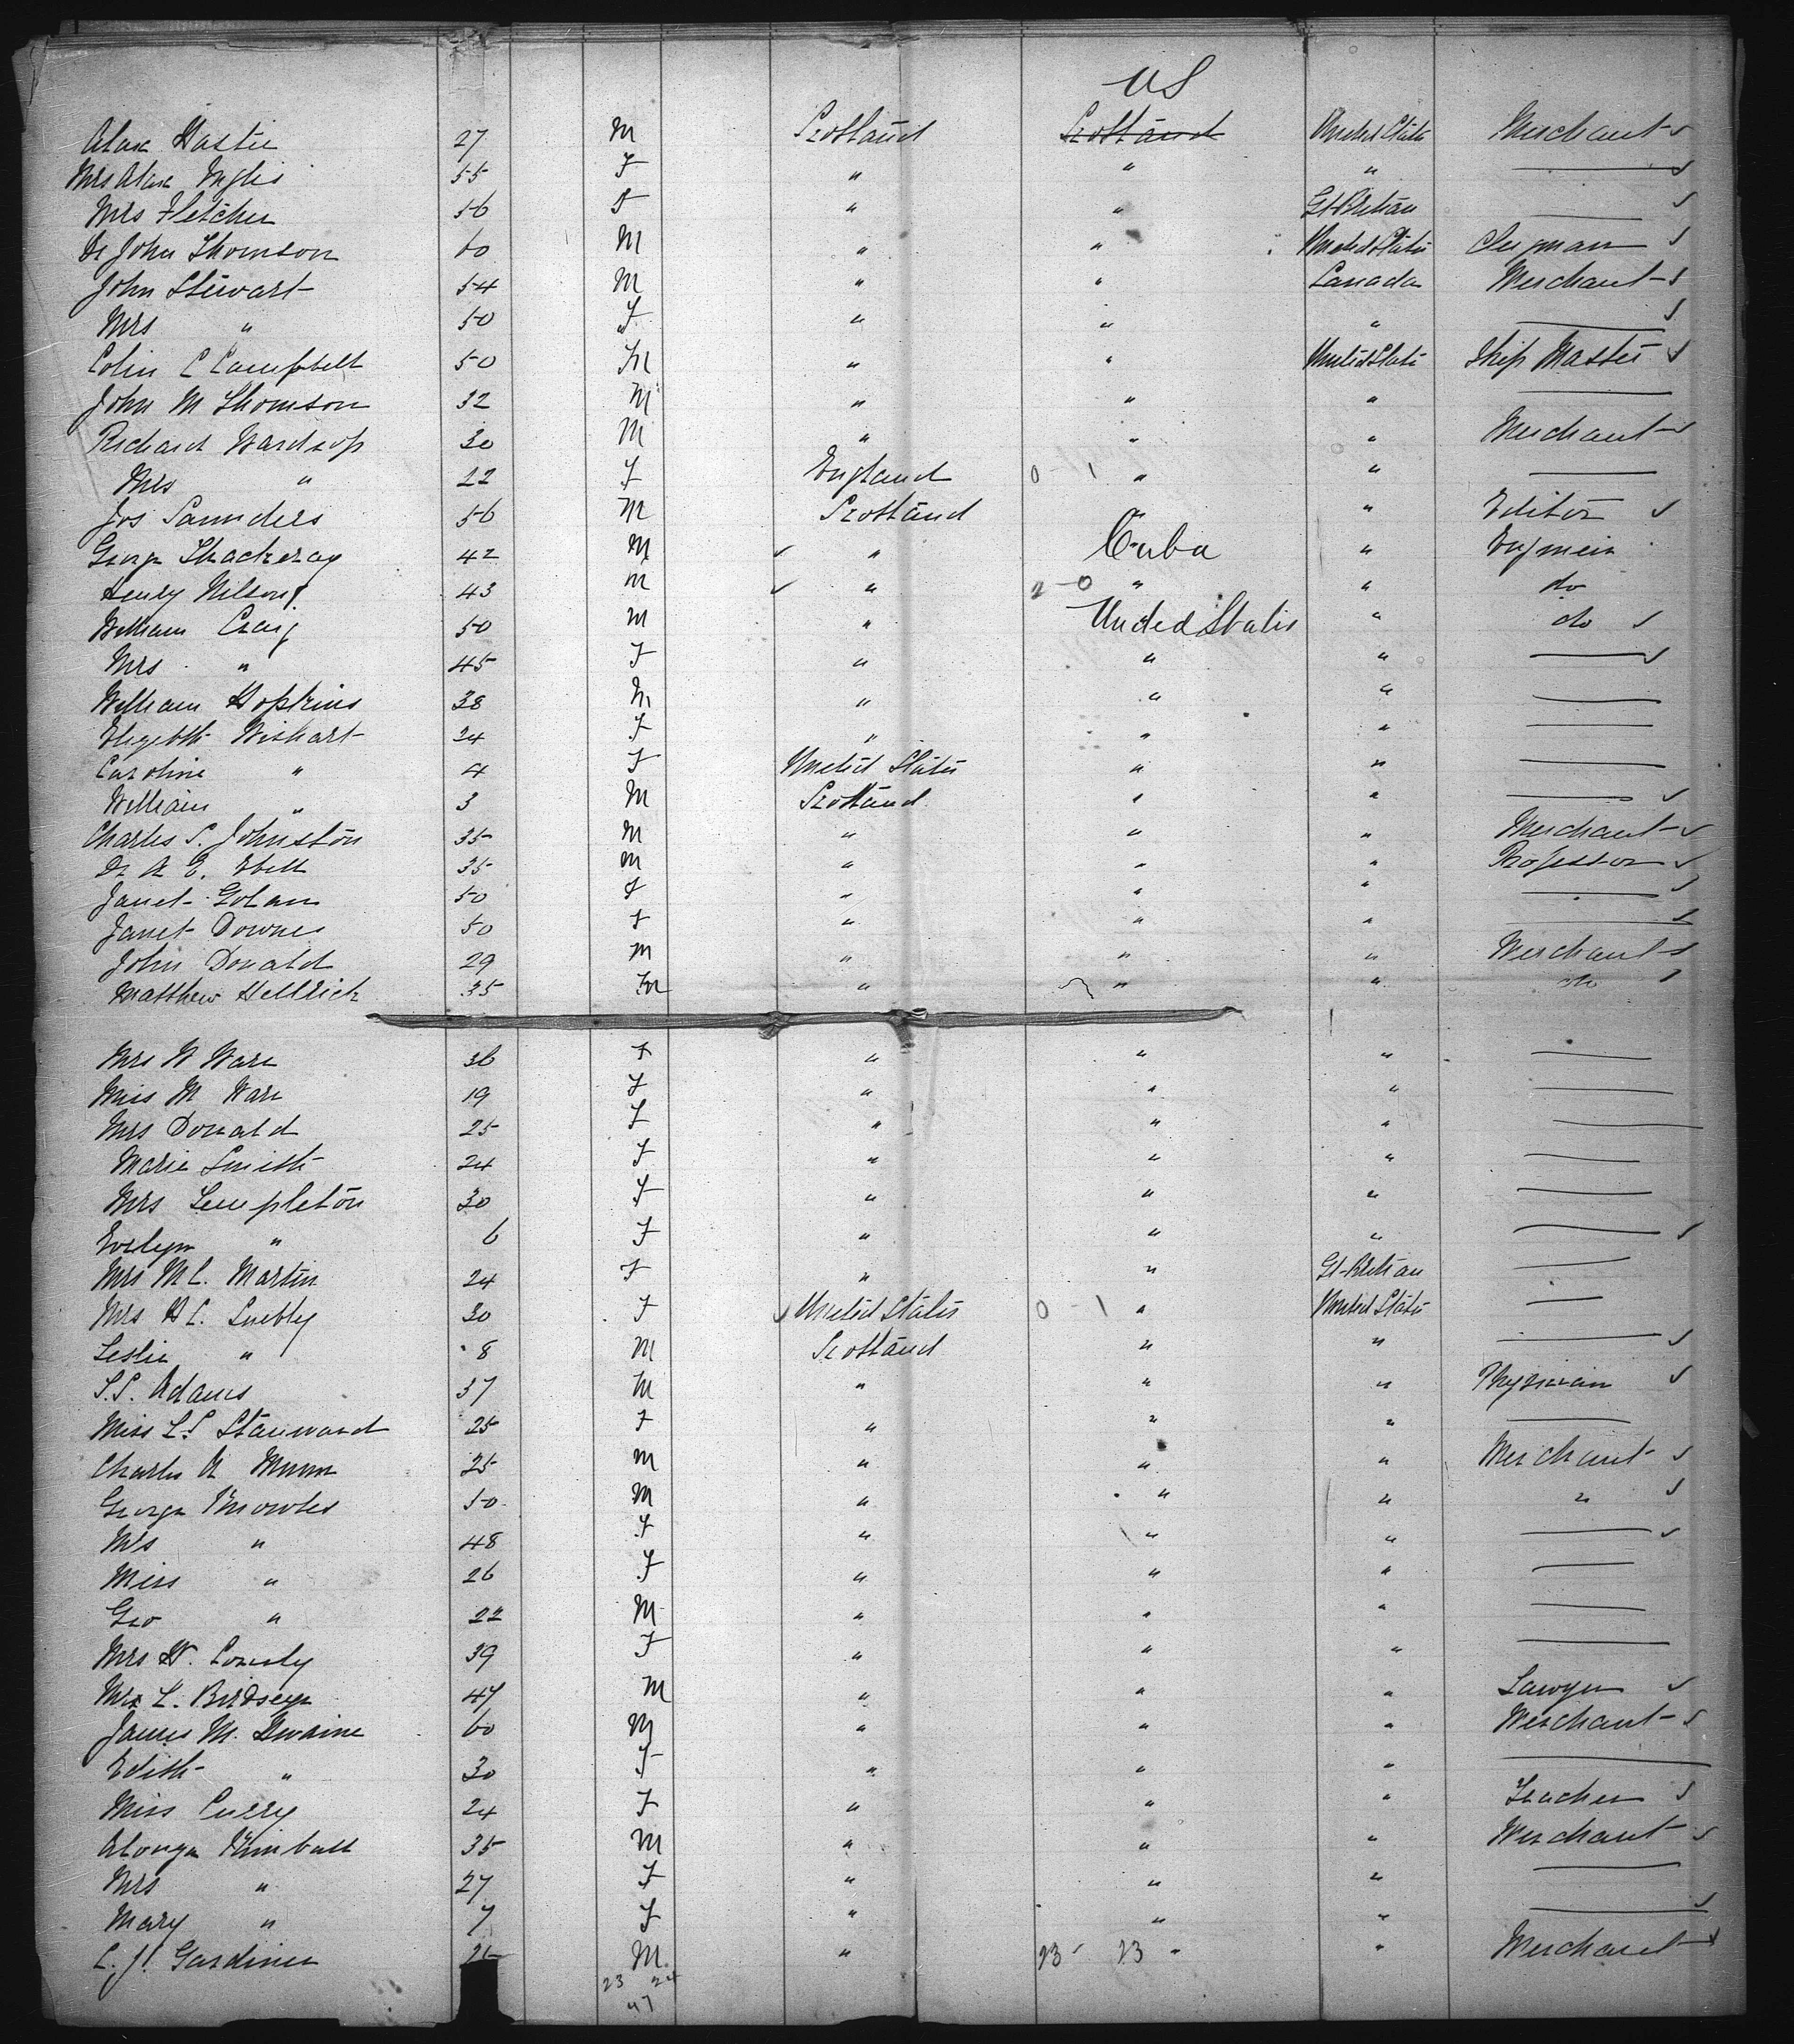 US
Alex Hastie 27 M Scotland Scotland United States Merchant
Mrs Alex Inglis 55 F " " " —
Mrs Fletcher 56 F " " Gt Britian —
Dr John Thomson 60 M " " United States Clergman
John Stewart 54 M " " Canada Merchant
Mrs " 50 F " " " —
Colin C Campbell 50 M " " United States Ship Master
John M Thomson 32 M " " " —
Richard Wardrop 30 M " " " Merchant
Mrs " 22 F England 0 - 1 " " —
Jos Saunders 56 M Scotland " " Editor
George Thackeray 42 M " Cuba "
Henry Wilson 43 M " 2-0 " " do
William Craig 50 M " United States " do
Mrs " 45 F " " " —
William Hopkins 38 M " " " —
Wishart 24 F " " " —
Caroline " 4 F United States " " —
William " 3 M Scotland " " —
Charles S. Johnston 35 M " " " Merchant
Dr A E. Ebell 35 M " " " Professor
Janet Golan 50 F " " " —
Janet Downes 50 F " " " —
John Donald 29 M " " " Merchant
Matthew 35 M " " " do
Mrs W Ware 36 F " " " —
Miss M Ware 19 F " " " —
Mrs Donald 25 F " " " —
Maria Smith 24 F " " " —
Mrs Templeton 30 F " " " —
Evelyn " 6 F " " " —
Mrs M C. Martin 24 F " " Gt Britian —
Mrs H C. 30 F United States 0 - 1 " United States —
Leslie " 8 M Scotland " " —
S. S. Adams 37 M " " " Physician
Miss L S Stanwood 25 F " " " —
Charles A Munn 25 M " " " Merchant
George Knowles 50 M " " " "
Mrs " 48 F " " " —
Miss " 26 F " " " —
Geo " 22 M " " " —
Mrs W. 39 F " " " —
Mr L. Birdseye 47 M " " " Lawyer
James M. Dwaine 60 M " " " Merchant
Edith " 30 F " " " —
Miss Curry 24 F " " " Teacher
Alonza Kimball 35 M " " " Merchant
Mrs " 27 F " " " —
Mary " 7 F " " " —
C. J. Gardiner M " 23 - 23 " " Merchant
23 24
47